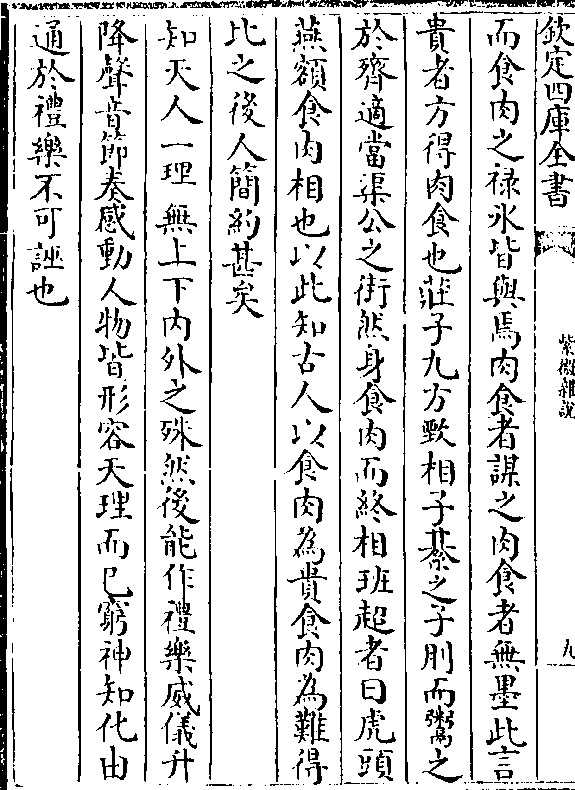 欽定四庫全書
紫微雜說
九
而食肉之禄氷皆與焉肉食者謀之肉食者無墨此言
貴者方得肉食也莊子九方歅相子綦之子刖而鬻之
於齊適當渠公之街然身食肉而終相班超者曰虎頭
燕額食肉相也以此知古人以食肉為貴食肉為難得
比之後人簡約甚矣
知天人一理無上下内外之殊然後能作禮樂威儀升
降聲音節奏感動人物皆形容天理而已窮神知化由
通於禮樂不可誣也